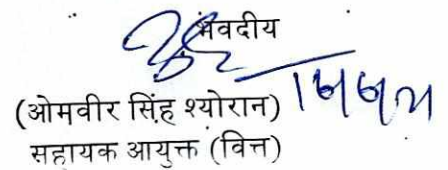 भवदीय
(ओमवीर सिंह श्योरान)
सहायक आयुक्त (वित्त)